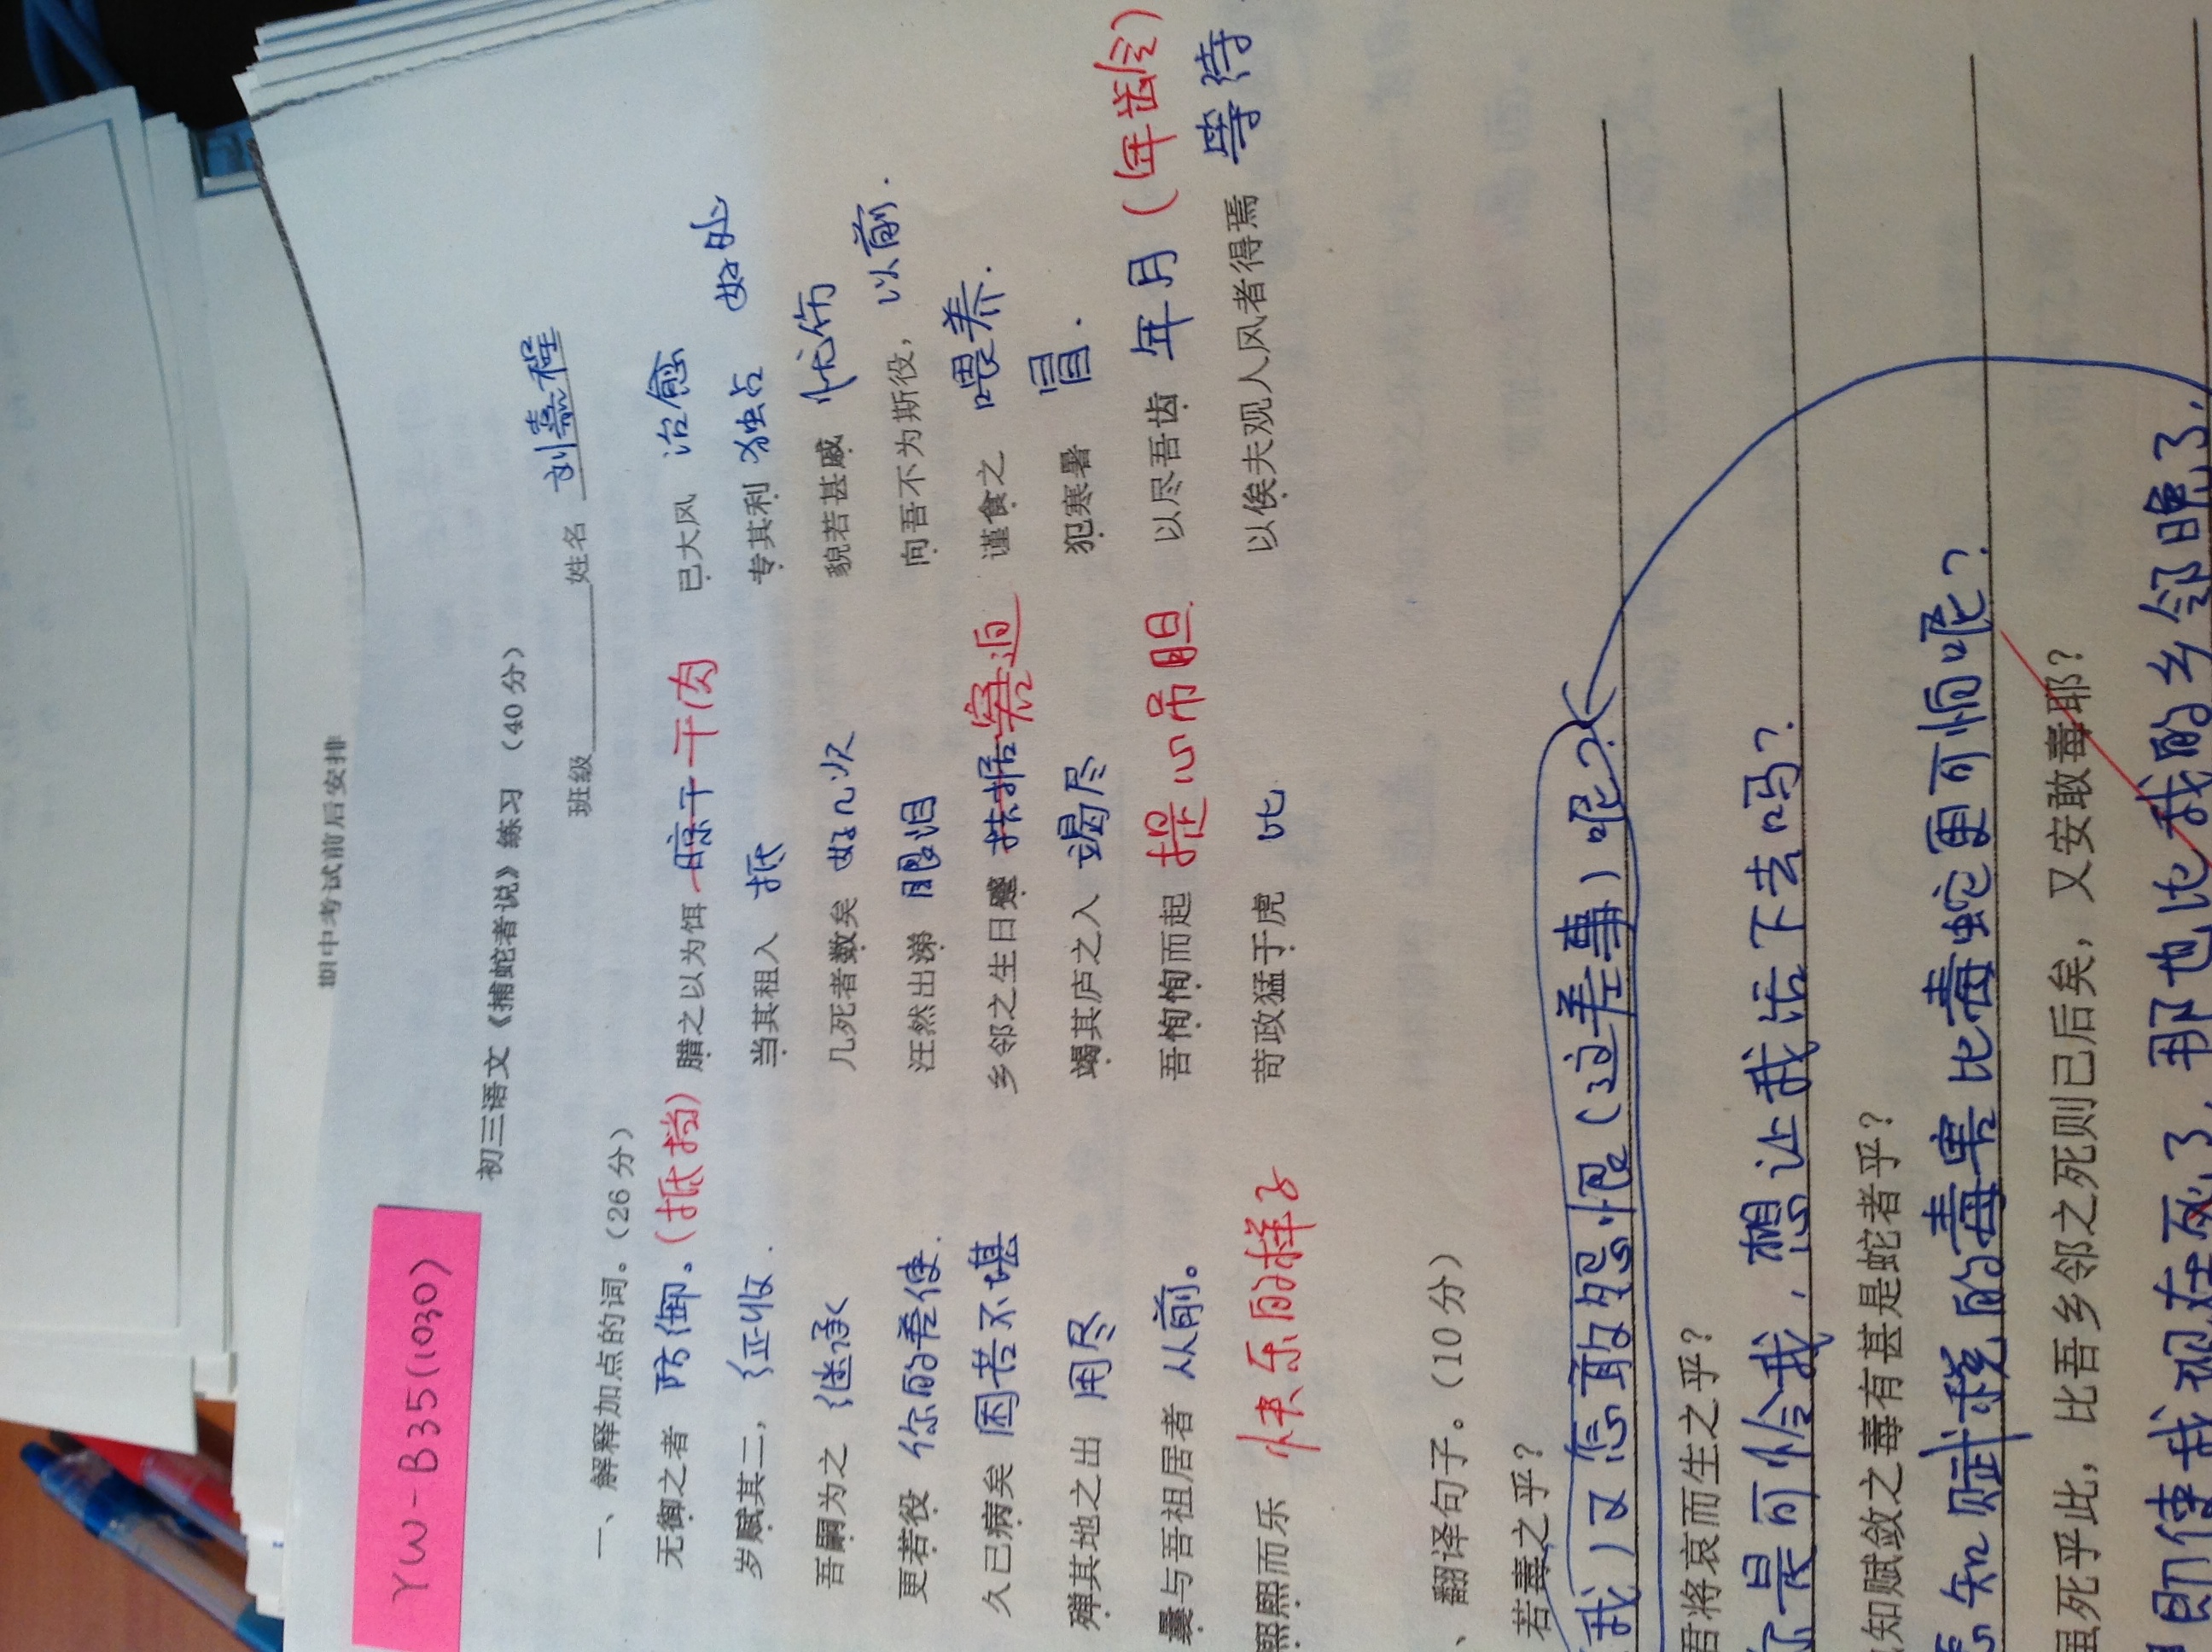 期中考试前后安排
YW-B35(1030)
初三语文《捕蛇者说》练习 (40分)
班级 姓名 刘嘉程
一、解释加点的词。(26分)
无御之者 防御。(抵挡) 腊之以为饵 晾干 干肉 已大风 治愈
岁赋其二, 征收. 当其租入 抵 专其利 独占 好处
吾嗣为之 继承 几死者数矣 好几次 貌若甚戚 忧伤
更若役 你的差使. 汪然出涕 眼泪 向吾不为斯役, 以前.
久已病矣 困苦不堪 乡邻之生日蹙 拮据 窘迫 谨食之 喂养.
殚其地之出 用尽 竭其庐之入 竭尽 犯寒暑 冒.
曩与吾祖居者 从前。 吾恂恂而起 提心吊胆 以尽吾齿 年月 (年龄)
熙熙而乐 快乐的样子 苛政猛于虎 比 以俟夫观人风者得焉 等待
、翻译句子。(10分)
若毒之乎?
我)又怎敢怨恨(这差事)呢?
君将哀而生之乎?
你是可怜我,想让我活下去吗?
知赋敛之毒有甚是蛇者乎?
知赋税的毒害比毒蛇更可怕呢?
虽死乎此,比吾乡邻之死则已后矣,又安敢毒耶?
即使我现在死了,那也比我的乡邻晚了,